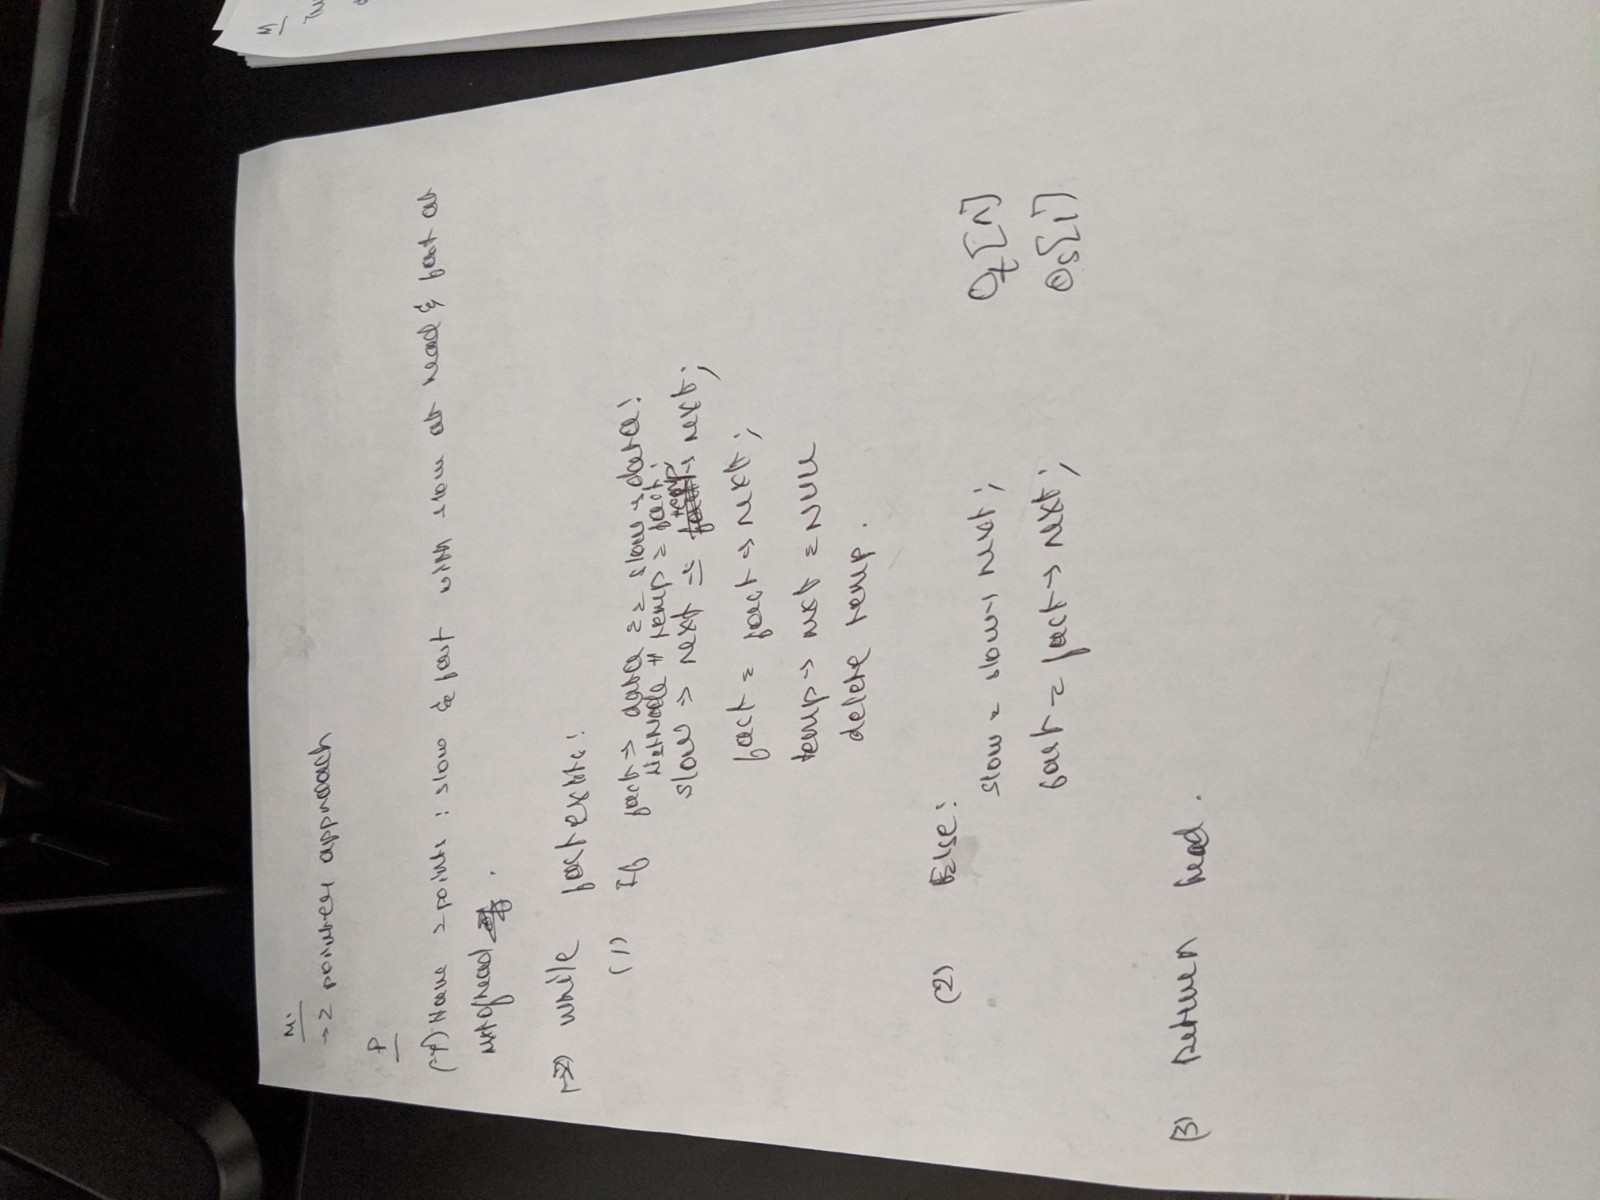 M:
→ 2 pointer approach
P
(1) Have 2 points : slow & fast with slow at head & fast at
next of head.
(2) while fast exists:
(1) If fast → data == slow → data:
ListNode * temp = fast;
slow → next = temp → next;
fast = fast → next;
temp → next = NULL
delete temp.
(2) Else:
slow = slow → next;
fast = fast → next;
Ot[n]
Os[1]
(3) Return head.
M